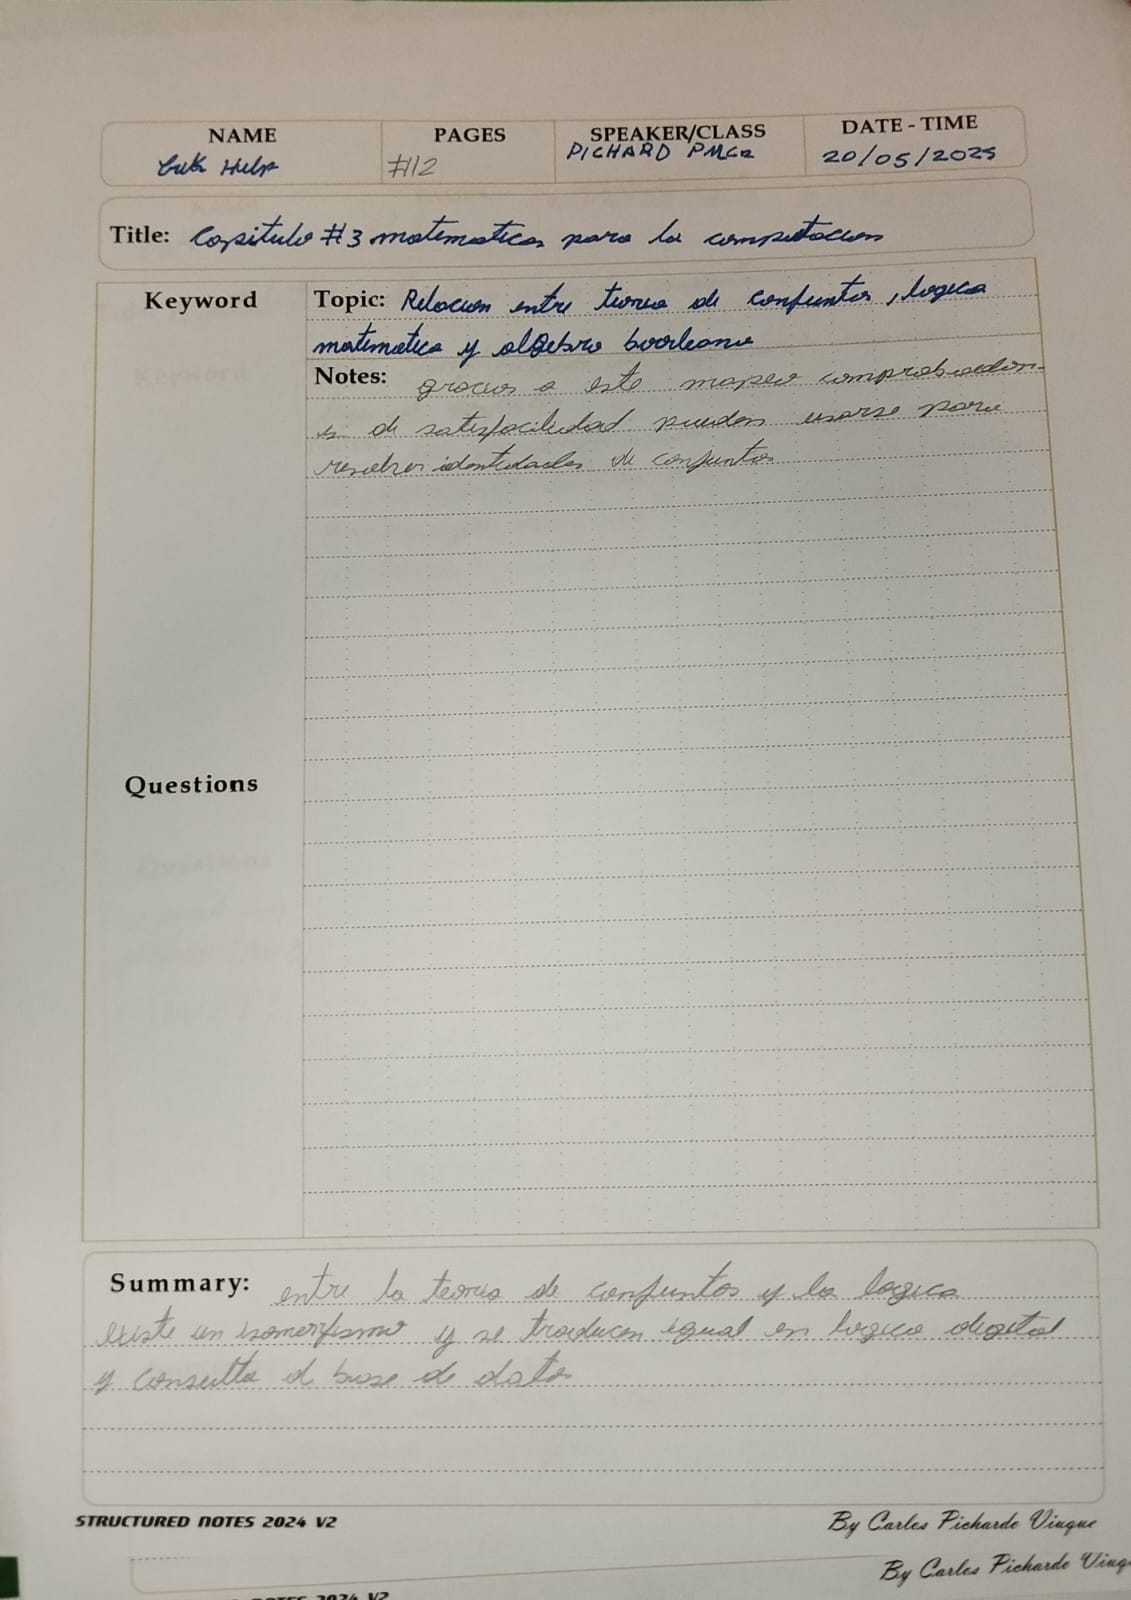 NAME PAGES SPEAKER/CLASS DATE - TIME
Help #112 PICHARD PMCR 20/05/2025
Title: Capitulo #3 matematicas para la computacion
Keyword
Topic: Relacion entre teoria de conjuntos, logica
matematica y algebra booleana
Notes: gracias a este mapeo comprobadon-
es de satisfacilidad pueden usarse para
resolver identidades de conjuntos
Questions
Summary: entre la teoria de conjuntos y la logica
existe un isomorfismo y se traducen igual en logica digital
y consulta d base de datos
STRUCTURED NOTES 2024 V2
By Carlos Pichardo Viuque
By Carlos Pichardo Viuq
NOTES 2024 V2